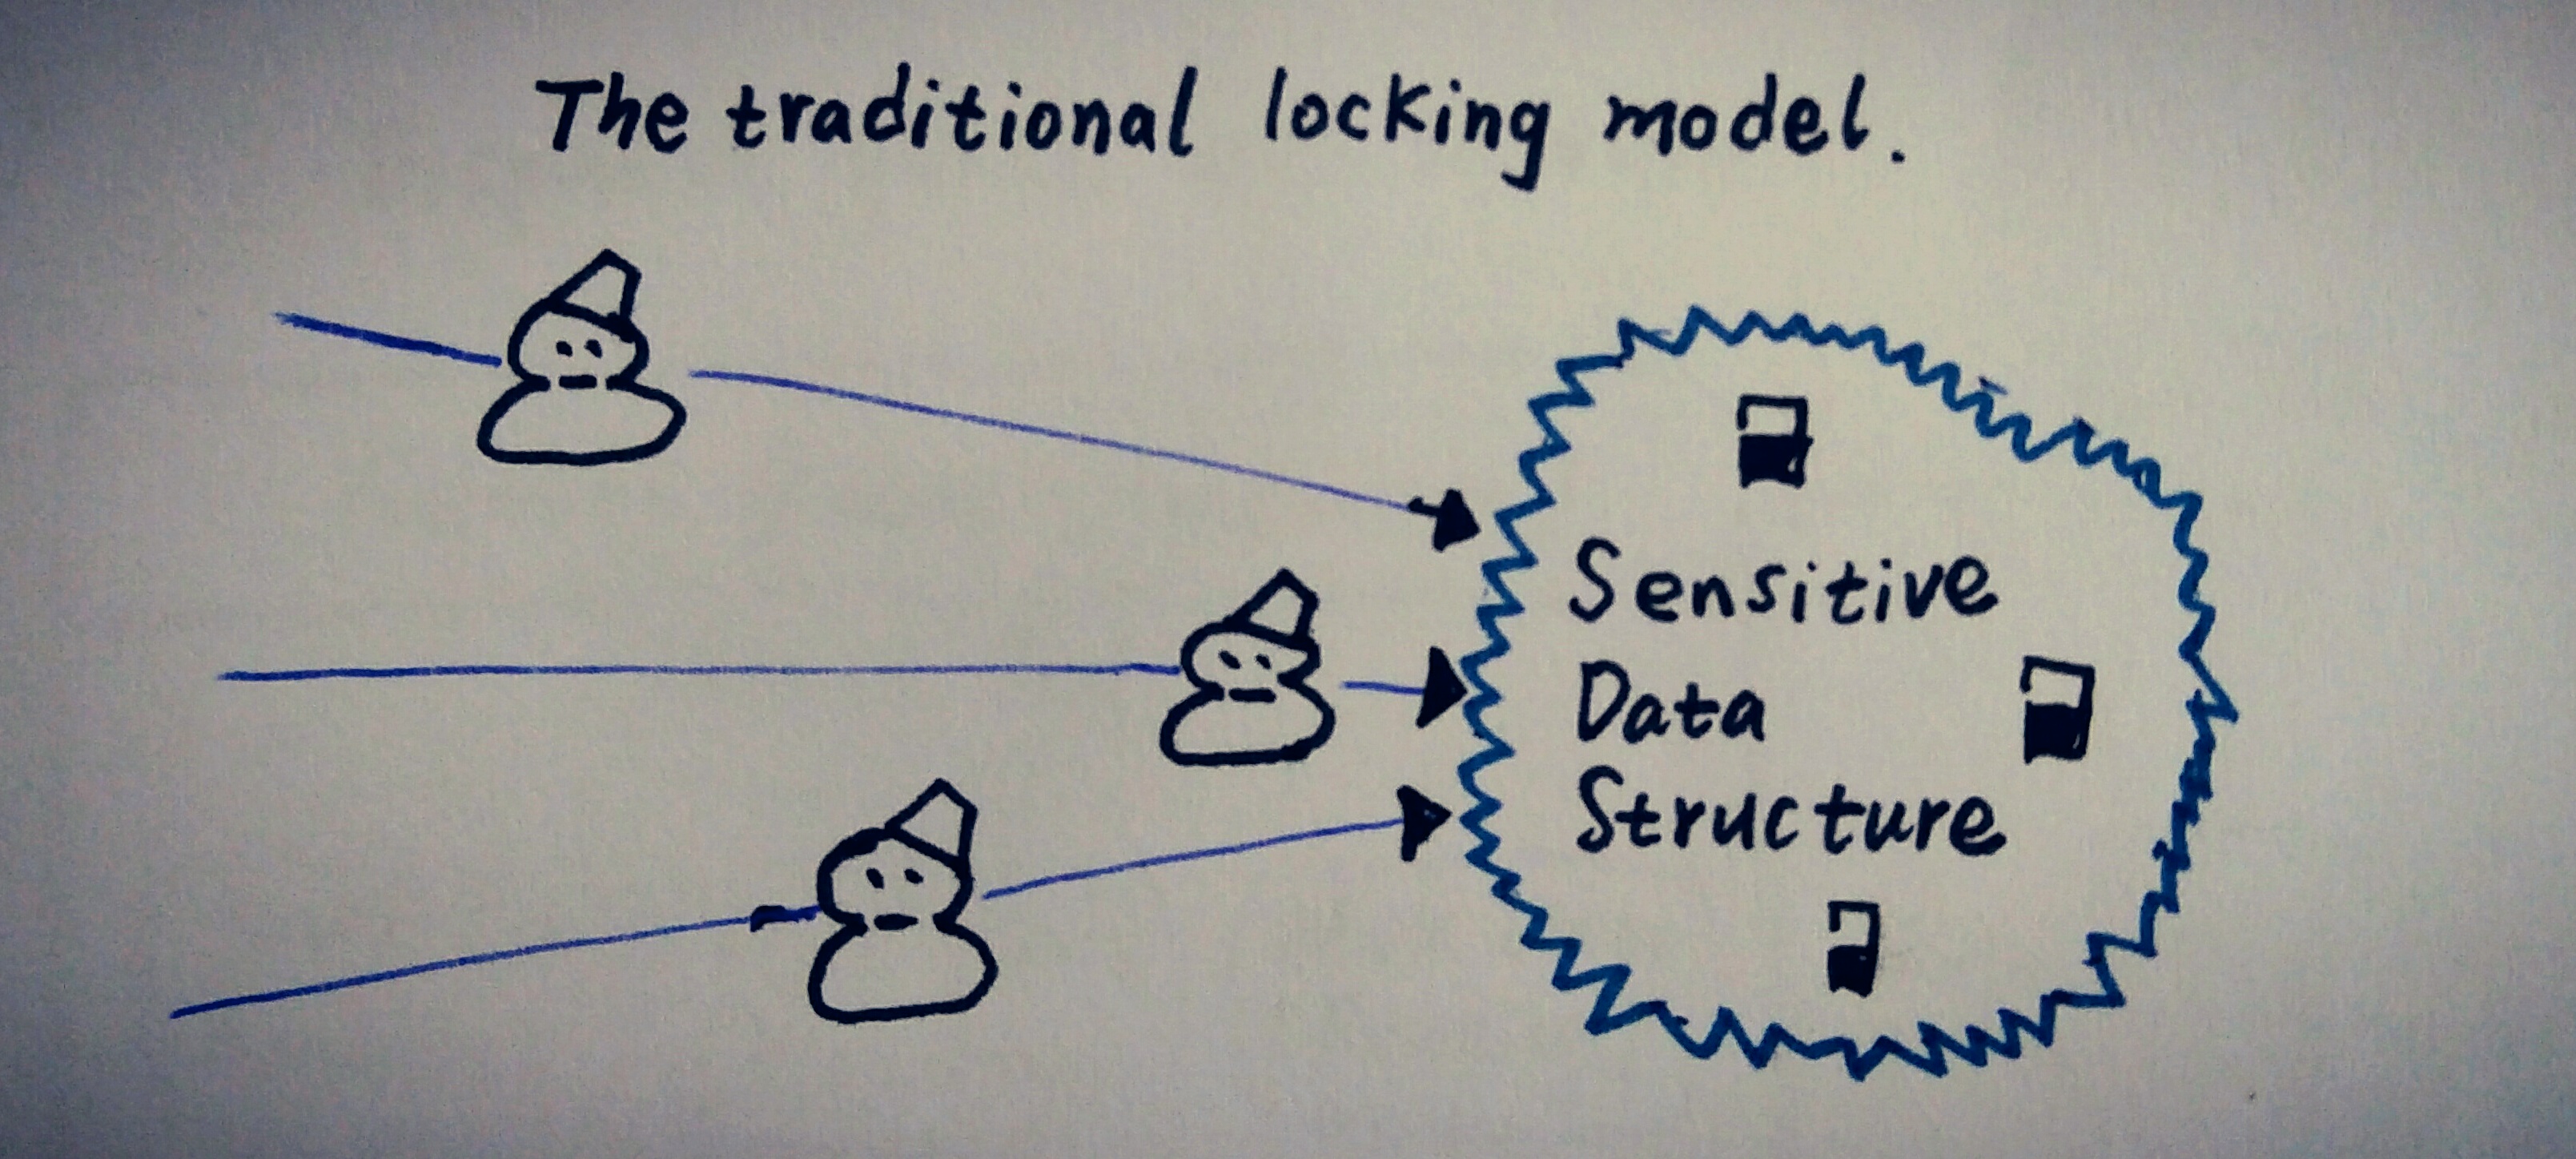 The traditional locking model.
Sensitive
Data
Structure